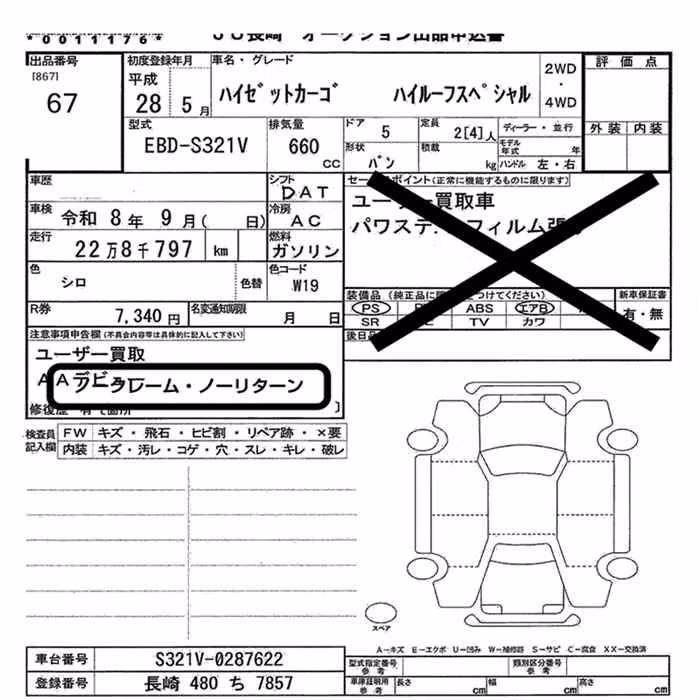 *0011176* JU長崎 オークション出品申込書
出品番号 初度登録年月 車名・グレード 評価点
[867] 平成 2WD
67 28 5月 ハイゼットカーゴ ハイルーフスペシャル ・
4WD
型式 排気量 ドア 5 定員 2[4]人 ディーラー・並行 外装 内装
EBD-S321V 660 形状 積載 モデル年式 年
CC バン kg ハンドル 左・右
車歴 シフト セールスポイント(正常に機能するものに限ります)
DAT ユーザー買取車
車検 令和 8年 9月( 日) 冷房 AC
走行 22万8千797 km 燃料 ガソリン
色 シロ 色替 色コード W19
装備品 新車保証書
PS ABS エアB 有・無
SR TV カワ
R券 7,340円 名変通知期限 月 日
後日品
注意事項申告欄(不具合内容等は具体的に記入して下さい)
ユーザー買取
ノークレーム・ノーリターン
修復歴
検査員 FW キズ・飛石・ヒビ割・リペア跡・×要
記入欄 内装 キズ・汚レ・コゲ・穴・スレ・キレ・破レ
スペア
A-キズ E-エクボ U-凹み W-補修跡 S-サビ C-腐食 XX-交換済
車台番号 S321V-0287622 型式指定番号 参考 類別区分番号 参考
登録番号 長崎 480 ち 7857 車庫証明用 参考 長さ cm 幅 cm 高さ cm